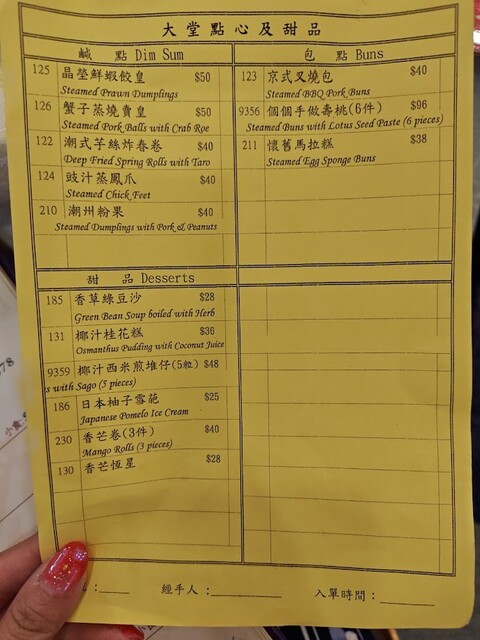 大堂點心及甜品
鹹 點 Dim Sum
125 晶瑩鮮蝦餃皇 $50
Steamed Prawn Dumplings
126 蟹子蒸燒賣皇 $50
Steamed Pork Balls with Crab Roe
122 潮式芋絲炸春卷 $40
Deep Fried Spring Rolls with Taro
124 豉汁蒸鳳爪 $40
Steamed Chick Feet
210 潮州粉果 $40
Steamed Dumplings with Pork & Peanuts
包 點 Buns
123 京式叉燒包 $40
Steamed BBQ Pork Buns
9356 個個手做壽桃(6件) $96
Steamed Buns with Lotus Seed Paste (6 pieces)
211 懷舊馬拉糕 $38
Steamed Egg Sponge Buns
甜 品 Desserts
185 香草綠豆沙 $28
Green Bean Soup boiled with Herb
131 椰汁桂花糕 $36
Osmanthus Pudding with Coconut Juice
9359 椰汁西米煎堆仔(5粒) $48
s with Sago (5 pieces)
186 日本柚子雪葩 $25
Japanese Pomelo Ice Cream
230 香芒卷(3件) $40
Mango Rolls (3 pieces)
130 香芒恆星 $28
: 經手人: 入單時間: